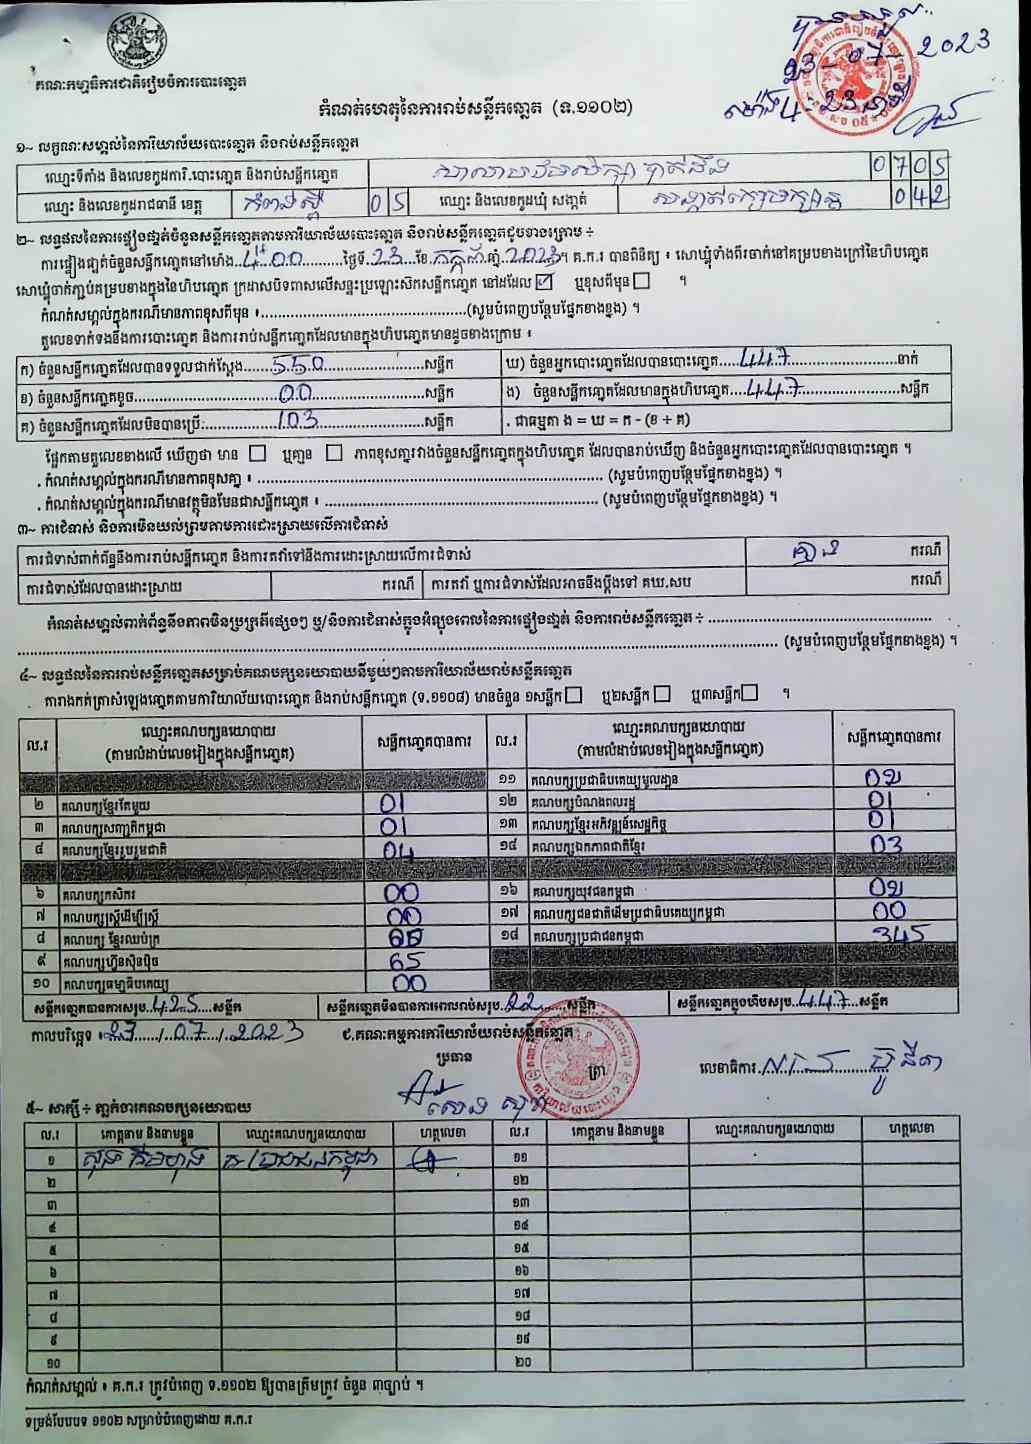 គណៈកម្មាធិការជាតិរៀបចំការបោះឆ្នោត
23-07-2023
កំណត់ហេតុនៃការរាប់សន្លឹកឆ្នោត (ទ.១១០២)
ម៉ោង 4:23 នាទី
១~ លក្ខណៈសម្គាល់នៃការិយាល័យបោះឆ្នោត និងរាប់សន្លឹកឆ្នោត
ឈ្មោះទីតាំង និងលេខកូដការិ.បោះឆ្នោត និងរាប់សន្លឹកឆ្នោត 0705
ឈ្មោះ និងលេខកូដរាជធានី ខេត្ត កំពង់ស្ពឺ 05 ឈ្មោះ និងលេខកូដឃុំ សង្កាត់ 042
២~ លទ្ធផលនៃការផ្ទៀងផ្ទាត់ចំនួនសន្លឹកឆ្នោតតាមការិយាល័យបោះឆ្នោត និងរាប់សន្លឹកឆ្នោតដូចខាងក្រោម ÷
ការផ្ទៀងផ្ទាត់ចំនួនសន្លឹកឆ្នោតនៅម៉ោង..4:00..ថ្ងៃទី..23..ខែ.កក្កដា.ឆ្នាំ.2023.។ គ.ក.រ បានពិនិត្យ ៖ សោឃ្លុំទាំងពីរចាក់នៅគម្របខាងក្រៅនៃហិបឆ្នោត
សោឃ្លុំចាក់ភ្ជាប់គម្របខាងក្នុងនៃហិបឆ្នោត ក្រដាសបិទពាសលើសន្ទះប្រឡោះស៊កសន្លឹកឆ្នោត នៅដដែល ☑ ឬខុសពីមុន ☐ ។
កំណត់សម្គាល់ក្នុងករណីមានភាពខុសពីមុន ៖........(សូមបំពេញបន្ថែមផ្នែកខាងខ្នង) ។
តួលេខទាក់ទងនឹងការបោះឆ្នោត និងការរាប់សន្លឹកឆ្នោតដែលមានក្នុងហិបឆ្នោតមានដូចខាងក្រោម ៖
ក) ចំនួនសន្លឹកឆ្នោតដែលបានទទួលជាក់ស្តែង.....550.....សន្លឹក ឃ) ចំនួនអ្នកបោះឆ្នោតដែលបានបោះឆ្នោត....447......នាក់
ខ) ចំនួនសន្លឹកឆ្នោតខូច.....00.....សន្លឹក ង) ចំនួនសន្លឹកឆ្នោតដែលមានក្នុងហិបឆ្នោត....447.....សន្លឹក
គ) ចំនួនសន្លឹកឆ្នោតដែលមិនបានប្រើ:.....103.....សន្លឹក . ជាធម្មតា ង = ឃ = ក - (ខ + គ)
ផ្អែកតាមតួលេខខាងលើ ឃើញថា មាន ☐ ឬគ្មាន ☐ ភាពខុសគ្នារវាងចំនួនសន្លឹកឆ្នោតក្នុងហិបឆ្នោត ដែលបានរាប់ឃើញ និងចំនួនអ្នកបោះឆ្នោតដែលបានបោះឆ្នោត ។
. កំណត់សម្គាល់ក្នុងករណីមានភាពខុសគ្នា ៖ ........ (សូមបំពេញបន្ថែមផ្នែកខាងខ្នង) ។
. កំណត់សម្គាល់ក្នុងករណីមានវត្ថុមិនមែនជាសន្លឹកឆ្នោត ៖ ........ (សូមបំពេញបន្ថែមផ្នែកខាងខ្នង) ។
៣~ ការជំទាស់ និងការមិនយល់ព្រមតាមការដោះស្រាយលើការជំទាស់
ការជំទាស់ពាក់ព័ន្ធនឹងការរាប់សន្លឹកឆ្នោត និងការតវ៉ាទៅនឹងការដោះស្រាយលើការជំទាស់ គ្មាន ករណី
ការជំទាស់ដែលបានដោះស្រាយ ករណី ការតវ៉ា ឬការជំទាស់ដែលអាចនឹងប្តឹងទៅ គឃ.សប ករណី
កំណត់សម្គាល់ពាក់ព័ន្ធនឹងភាពមិនប្រក្រតីផ្សេងៗ ឬ/និងការជំទាស់ក្នុងអំឡុងពេលនៃការផ្ទៀងផ្ទាត់ និងការរាប់សន្លឹកឆ្នោត ÷ ........
........ (សូមបំពេញបន្ថែមផ្នែកខាងខ្នង) ។
៤~ លទ្ធផលនៃការរាប់សន្លឹកឆ្នោតសម្រាប់គណបក្សនយោបាយនីមួយៗតាមការិយាល័យរាប់សន្លឹកឆ្នោត
តារាងកត់ត្រាសំឡេងឆ្នោតតាមការិយាល័យបោះឆ្នោត និងរាប់សន្លឹកឆ្នោត (ទ.១១០៨) មានចំនួន ១សន្លឹក ☐ ឬ២សន្លឹក ☐ ឬ៣សន្លឹក ☐ ។
ល.រ ឈ្មោះគណបក្សនយោបាយ (តាមលំដាប់លេខរៀងក្នុងសន្លឹកឆ្នោត) សន្លឹកឆ្នោតបានការ ល.រ ឈ្មោះគណបក្សនយោបាយ (តាមលំដាប់លេខរៀងក្នុងសន្លឹកឆ្នោត) សន្លឹកឆ្នោតបានការ
១១ គណបក្សប្រជាធិបតេយ្យមូលដ្ឋាន 02
២ គណបក្សខ្មែរតែមួយ 01 ១២ គណបក្សបំណងពលរដ្ឋ 01
៣ គណបក្សសញ្ជាតិកម្ពុជា 01 ១៣ គណបក្សខ្មែរអភិវឌ្ឍន៍សេដ្ឋកិច្ច 01
៤ គណបក្សខ្មែររួបរួមជាតិ 04 ១៤ គណបក្សឯកភាពជាតិខ្មែរ 03
៦ គណបក្សកសិករ 00 ១៦ គណបក្សយុវជនកម្ពុជា 02
៧ គណបក្សស្ត្រីដើម្បីស្ត្រី 00 ១៧ គណបក្សជនជាតិដើមប្រជាធិបតេយ្យកម្ពុជា 00
៨ គណបក្ស ខ្មែរឈប់ក្រ ១៨ គណបក្សប្រជាជនកម្ពុជា 345
៩ គណបក្សហ៊្វុនស៊ិនប៉ិច 65
១០ គណបក្សធម្មាធិបតេយ្យ 00
សន្លឹកឆ្នោតបានការសរុប..425....សន្លឹក សន្លឹកឆ្នោតមិនបានការពេលរាប់សរុប..22....សន្លឹក សន្លឹកឆ្នោតក្នុងហិបសរុប..447..សន្លឹក
កាលបរិច្ឆេទ ៖ 23/07/2023 ជ.គណៈកម្មការការិយាល័យរាប់សន្លឹកឆ្នោត
ប្រធាន
លេខាធិការ
សេង
៥~ សាក្សី ÷ ភ្នាក់ងារគណបក្សនយោបាយ
ល.រ គោត្តនាម និងនាមខ្លួន ឈ្មោះគណបក្សនយោបាយ ហត្ថលេខា ល.រ គោត្តនាម និងនាមខ្លួន ឈ្មោះគណបក្សនយោបាយ ហត្ថលេខា
១ គ.ប្រជាជនកម្ពុជា ១១
២ ១២
៣ ១៣
៤ ១៤
៥ ១៥
៦ ១៦
៧ ១៧
៨ ១៨
៩ ១៩
១០ ២០
កំណត់សម្គាល់ ៖ គ.ក.រ ត្រូវបំពេញ ទ.១១០២ ឱ្យបានត្រឹមត្រូវ ចំនួន ៣ច្បាប់ ។
ទម្រង់បែបបទ ១១០២ សម្រាប់បំពេញដោយ គ.ក.រ